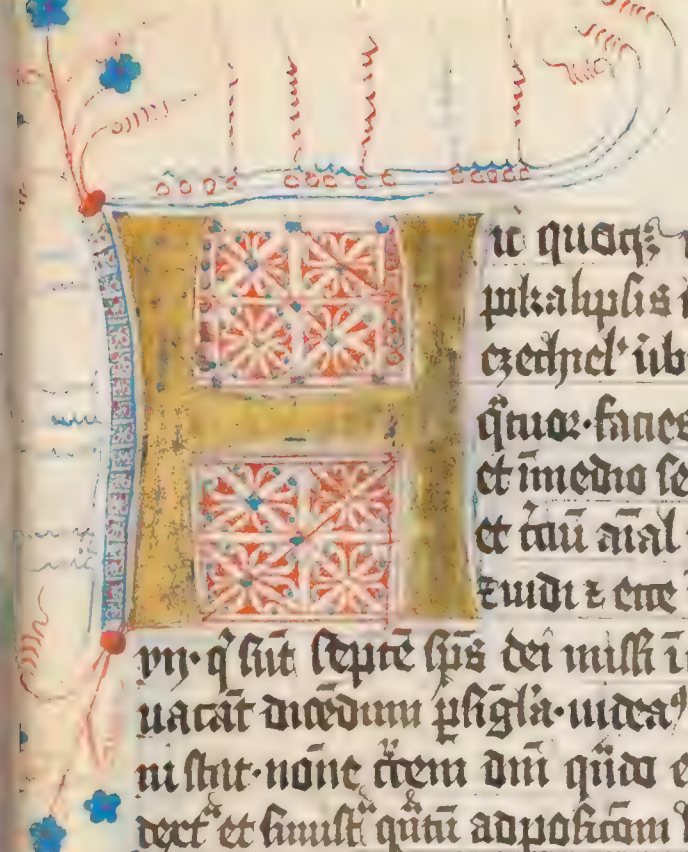 Hic quoqꝫ
pokalipsis
ezechiel' ub
q̄tuor·facies
et ī medio se
et t̄ciū aīal
⁊uidi ⁊ ecce
vn·q̄ sūt septē sp̄s dei missi ī
uacāt dicēdum p̄ sigl'a·uidea
ni stīt·nōne dn̄i qn̄do
dext'̄ et sinistr̄ q̄ntū ad positōm